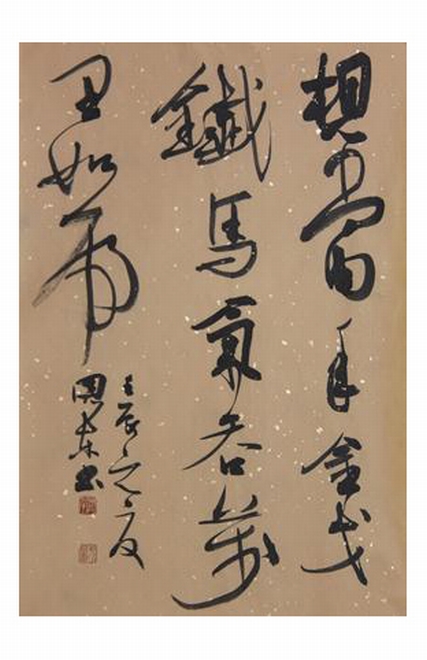 想當年金戈
鐵馬氣吞萬
里如虎
壬辰之夏
書